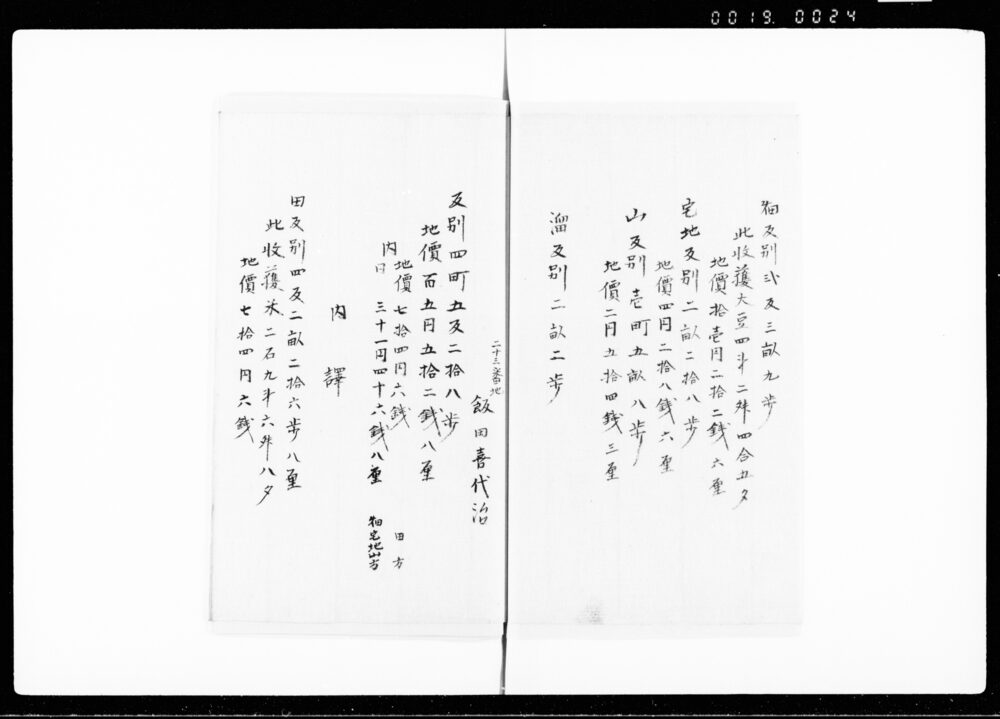 0019.0024
畑反別弐反三畝九歩
此収蘐大豆四斗二舛四合五夕
地價拾壱円二拾二銭六厘
宅地反別二畝二拾八歩
地價四円二拾八銭六厘
山反別壱町五畝八歩
地價二円五拾四銭三厘
溜反別二畝二歩
二十三番地
飯田喜代治
反別四町五反二拾八歩
地價百五円五拾二銭八厘
内
地價七拾四円六銭 田方
日三十一円四十六銭八厘 畑宅地山方
内譯
田反別四反二畝二拾六歩八厘
此収蘐米二石九斗六舛八夕
地價七拾四円六銭